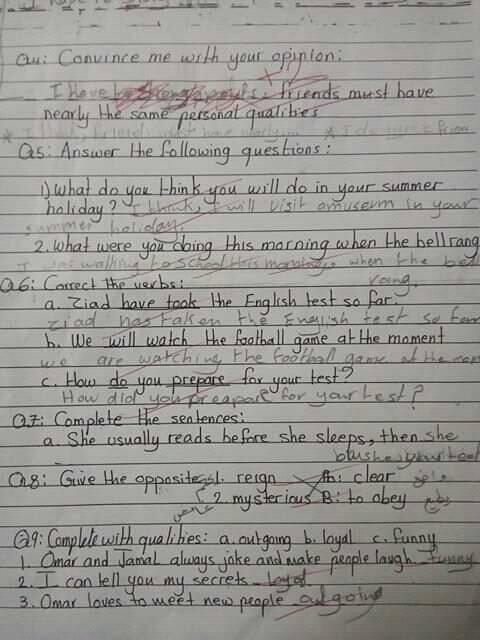 Q4: Convince me with your opinion:
I have friends must have
nearly the same personal qualities
Q5: Answer the following questions:
1) What do you think you will do in your summer
holiday? I think, I will visit amuseum in your
summer holiday.
2. What were you doing this morning when the bell rang
I was walking to School this morning, when the bell
rang.
Q.6: Correct the verbs:
a. Ziad have took the English test so far.
Ziad has taken the English test so far
b. We will watch the football game at the moment
we are watching the football game at the mom
c. How do you prepare for your test?
How did you preapare for your test?
Q.7: Complete the sentences:
a. She usually reads before she sleeps, then she
Q.8: Give the opposites: 1. reign A: clear واضح
2. mysterious B: to obey يطيع
غامض
Q.9: Complete with qualities: a. outgoing b. loyal c. funny
1. Omar and Jamal always joke and make people laugh. funny
2. I can tell you my secrets loyal
3. Omar loves to meet new people outgoing